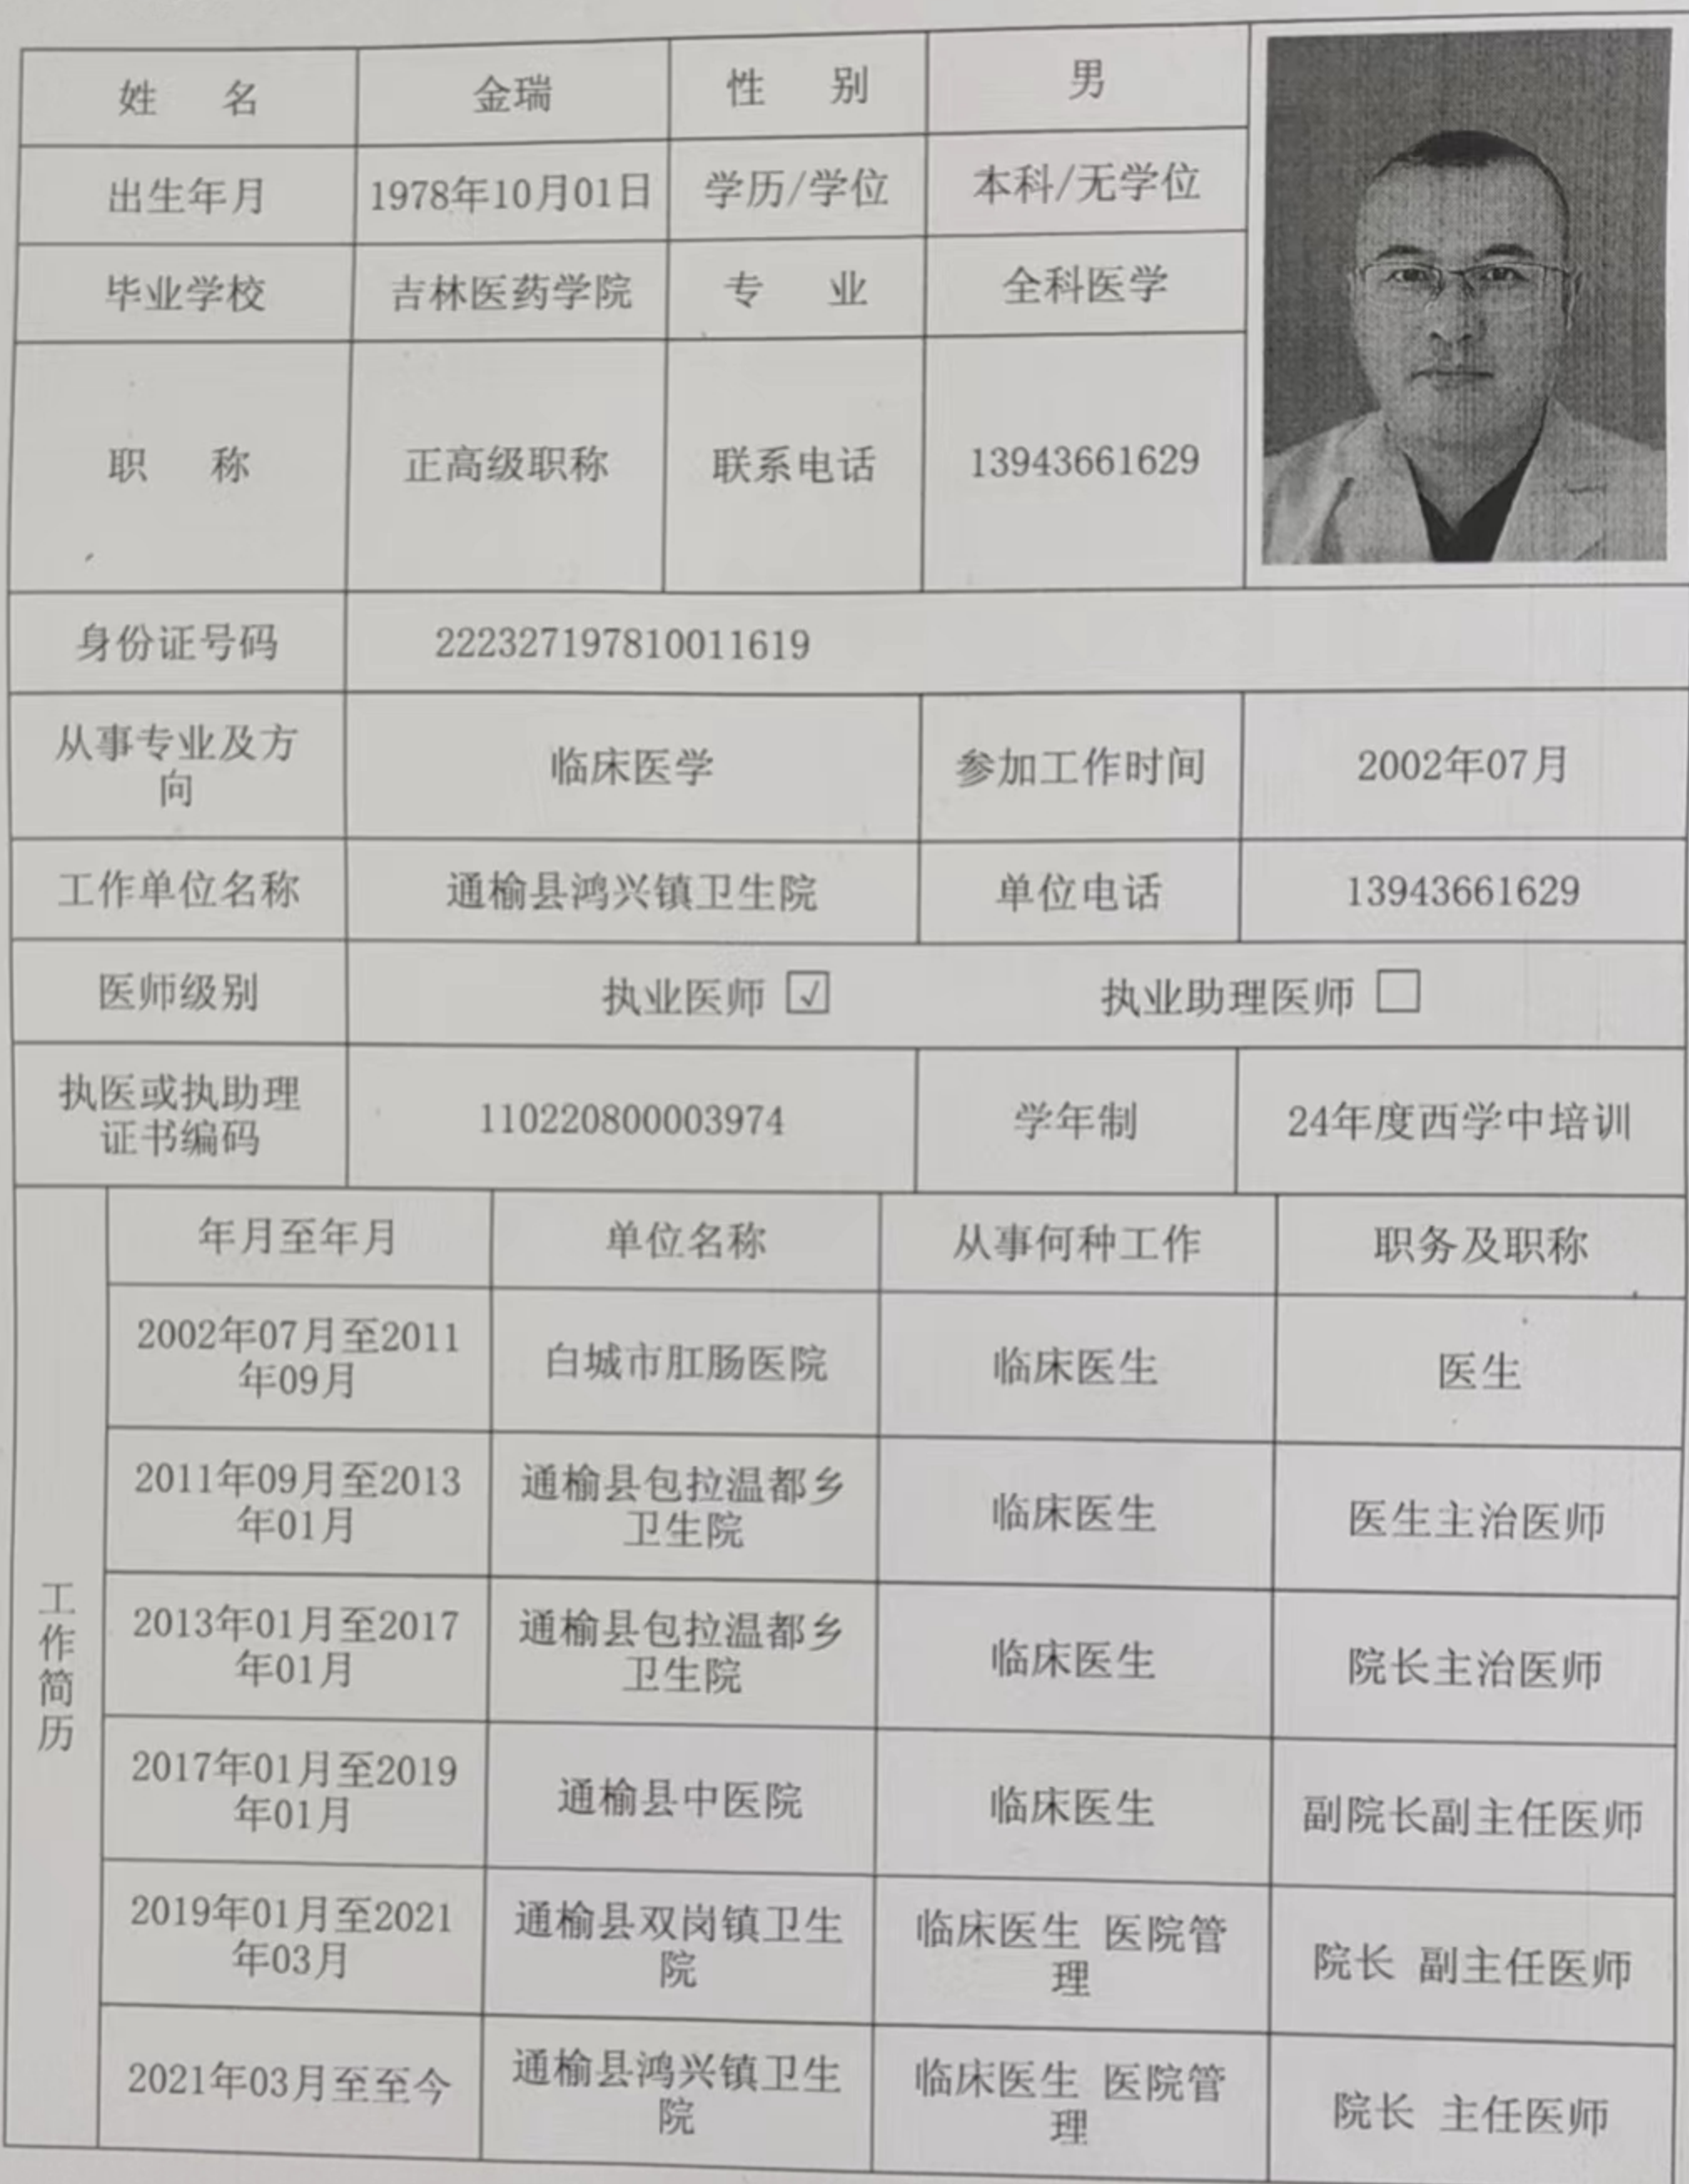 姓 名 金瑞 性 别 男
出生年月 1978年10月01日 学历/学位 本科/无学位
毕业学校 吉林医药学院 专 业 全科医学
职 称 正高级职称 联系电话 13943661629
身份证号码 222327197810011619
从事专业及方
向
临床医学 参加工作时间 2002年07月
工作单位名称 通榆县鸿兴镇卫生院 单位电话 13943661629
医师级别 执业医师 ☑ 执业助理医师 □
执医或执助理
证书编码
110220800003974 学年制 24年度西学中培训
工作简历
年月至年月 单位名称 从事何种工作 职务及职称
2002年07月至2011
年09月
白城市肛肠医院 临床医生 医生
2011年09月至2013
年01月
通榆县包拉温都乡
卫生院
临床医生 医生主治医师
2013年01月至2017
年01月
通榆县包拉温都乡
卫生院
临床医生 院长主治医师
2017年01月至2019
年01月
通榆县中医院 临床医生 副院长副主任医师
2019年01月至2021
年03月
通榆县双岗镇卫生
院
临床医生 医院管
理
院长 副主任医师
2021年03月至至今
通榆县鸿兴镇卫生
院
临床医生 医院管
理
院长 主任医师